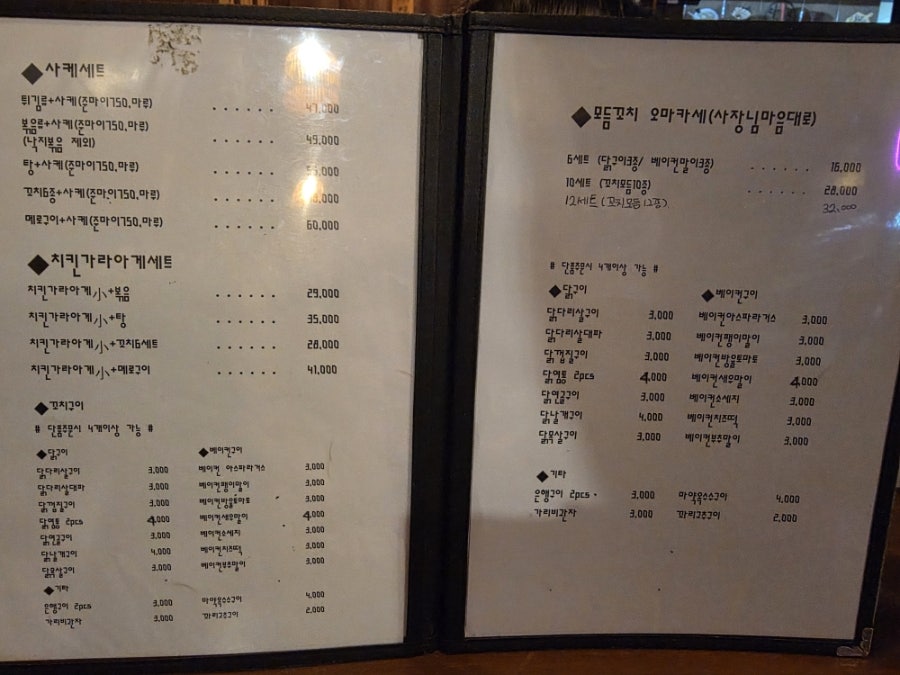 ◆사케세트
튀김류+사케(준마이750,마루) . . . . . . 47,000
볶음류+사케(준마이750,마루)
(낙지볶음 제외) . . . . . . 49,000
탕+사케(준마이750,마루) . . . . . .
꼬치6종+사케(준마이750,마루) . . . . . .
메로구이+사케(준마이750,마루) . . . . . . 60,000
◆치킨가라아게세트
치킨가라아게小+볶음 . . . . . . 29,000
치킨가라아게小+탕 . . . . . . 35,000
치킨가라아게小+꼬치6세트 . . . . . . 28,000
치킨가라아게小+메로구이 . . . . . . 41,000
◆꼬치구이
# 단품주문시 4개이상 가능 #
◆닭구이 ◆베이컨구이
닭다리살구이 3,000 베이컨 아스파라거스 3,000
닭다리살대파 3,000 베이컨팽이말이 3,000
닭껍질구이 3,000 베이컨방울토마토 3,000
닭염통 2pcs 4,000 베이컨새우말이 4,000
닭연골구이 3,000 베이컨소세지 3,000
닭날개구이 4,000 베이컨치즈떡 3,000
닭목살구이 3,000 베이컨부추말이 3,000
◆기타
은행구이 2pcs 3,000 마약옥수수구이 4,000
가리비관자 3,000 꽈리고추구이 2,000
◆모듬꼬치 오마카세(사장님마음대로)
6세트 (닭구이3종/ 베이컨말이3종) . . . . . . 16,000
10세트 (꼬치모듬10종) . . . . . . 28,000
12세트 (꼬치모듬12종) 32,000
# 단품주문시 4개이상 가능 #
◆닭구이 ◆베이컨구이
닭다리살구이 3,000 베이컨아스파라거스 3,000
닭다리살대파 3,000 베이컨팽이말이 3,000
닭껍질구이 3,000 베이컨방울토마토 3,000
닭염통 2pcs 4,000 베이컨새우말이 4,000
닭연골구이 3,000 베이컨소세지 3,000
닭날개구이 4,000 베이컨치즈떡 3,000
닭목살구이 3,000 베이컨부추말이 3,000
◆기타
은행구이 2pcs 3,000 마약옥수수구이 4,000
가리비관자 3,000 꽈리고추구이 2,000